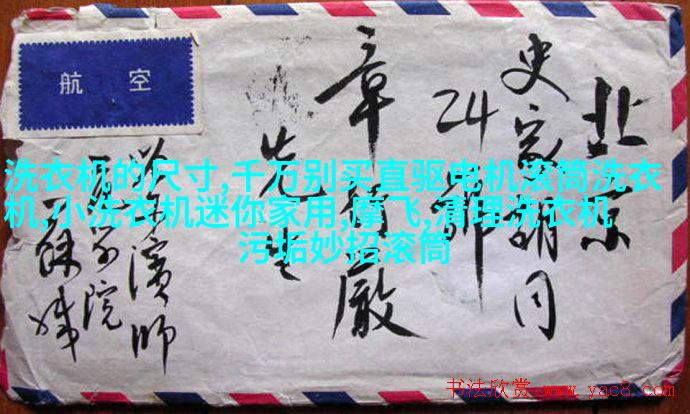 航空
北京
史家胡同
24
章
先生
濱師
院
洗衣机的尺寸,千万别买直驱电机滚筒洗衣
机,小洗衣机迷你家用,摩飞,清理洗衣机
污垢妙招滚筒
书法欣赏 www.yac8.com